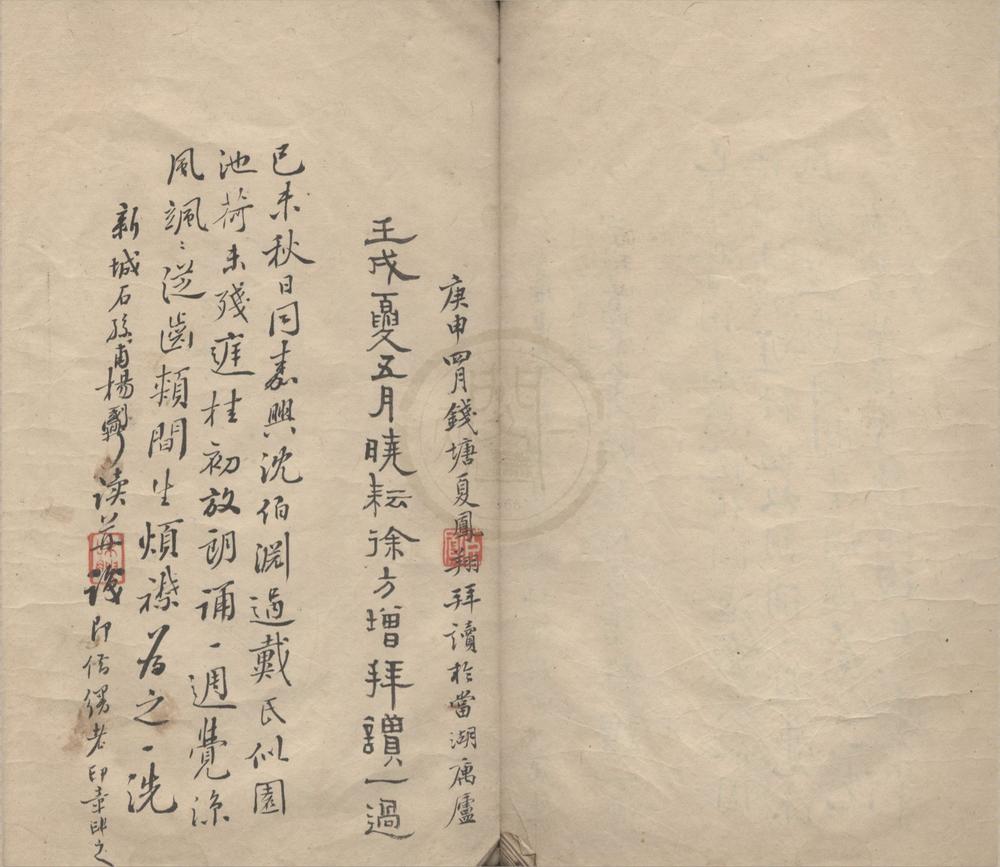 庚申四月錢塘夏鳳翔拜讀於當湖寓廬
壬戌夏五月曉耘徐方增拜讀一過
己未秋日同嘉興沈伯淵過戴氏似園
池荷未殘庭桂初放朗誦一週覺涼
風颯〻從齒頰間生煩襟為之一洗
新城石孫甫楊 讀並識即借 老印章印之